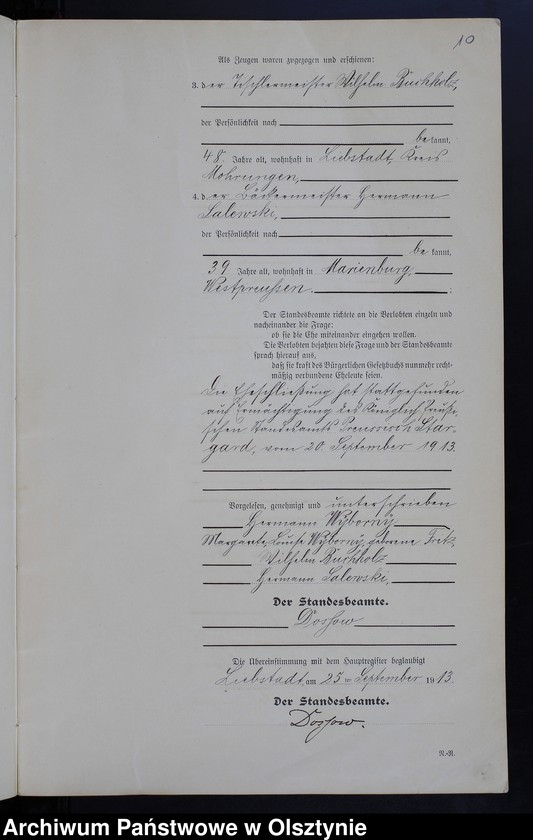 10
Als Zeugen waren zugezogen und erschienen:
3. der Tischlermeister Wilhelm Buchholz,
der Persönlichkeit nach
bekannt,
48 Jahre alt, wohnhaft in Liebstadt, Kreis
Mohrungen,
4. der Bäckermeister Hermann
Salewski,
der Persönlichkeit nach
bekannt,
39 Jahre alt, wohnhaft in Marienburg,
Westpreußen.
Der Standesbeamte richtete an die Verlobten einzeln und
nacheinander die Frage:
ob sie die Ehe miteinander eingehen wollen.
Die Verlobten bejahten diese Frage und der Standesbeamte
sprach hierauf aus,
daß sie kraft des Bürgerlichen Gesetzbuchs nunmehr recht-
mäßig verbundene Eheleute seien.
Die Eheschließung hat stattgefunden
auf Ermächtigung des Königlich Preußi-
schen Standesamts Preussisch Star-
gard, vom 20. September 1913.
Vorgelesen, genehmigt und unterschrieben
Hermann Wyborny
Margarete Louise Wyborny, geborene
Wilhelm Buchholz
Hermann Salewski,
Der Standesbeamte.
Dossow
Die Übereinstimmung mit dem Hauptregister beglaubigt
Liebstadt, am 25 ten September 1913.
Der Standesbeamte.
Dossow.
N.-R.
Archiwum Państwowe w Olsztynie